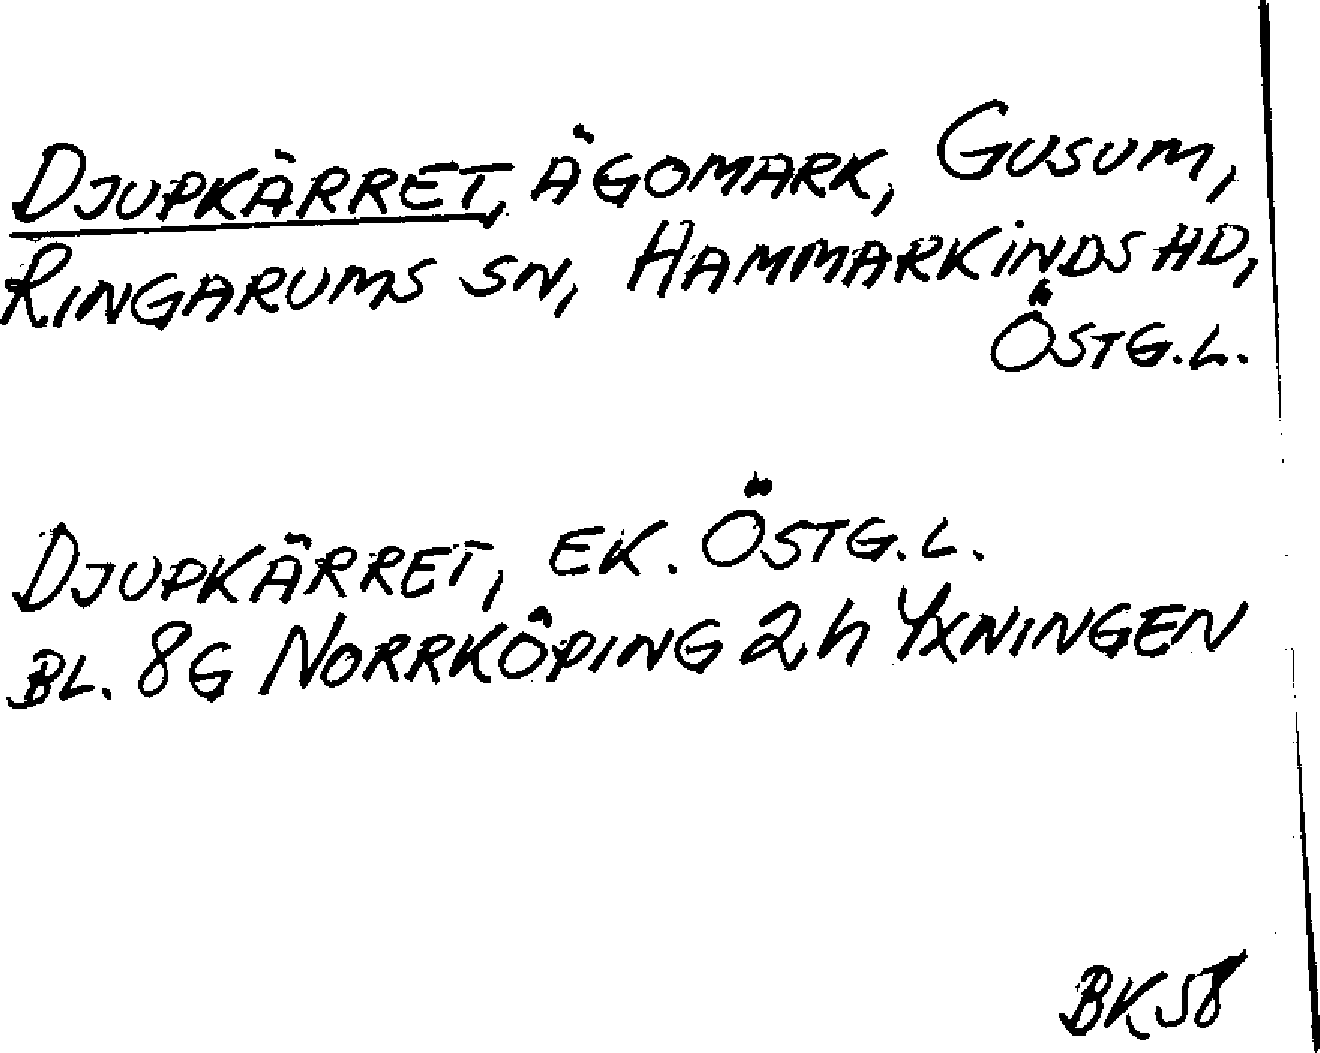 DJUPKÄRRET, ÄGOMARK, GUSUM,
RINGARUMS SN, HAMMARKINDS HD,
ÖSTG.L.
DJUPKÄRRET, EK. ÖSTG.L.
BL. 8G NORRKÖPING 2h YXNINGEN
BK58